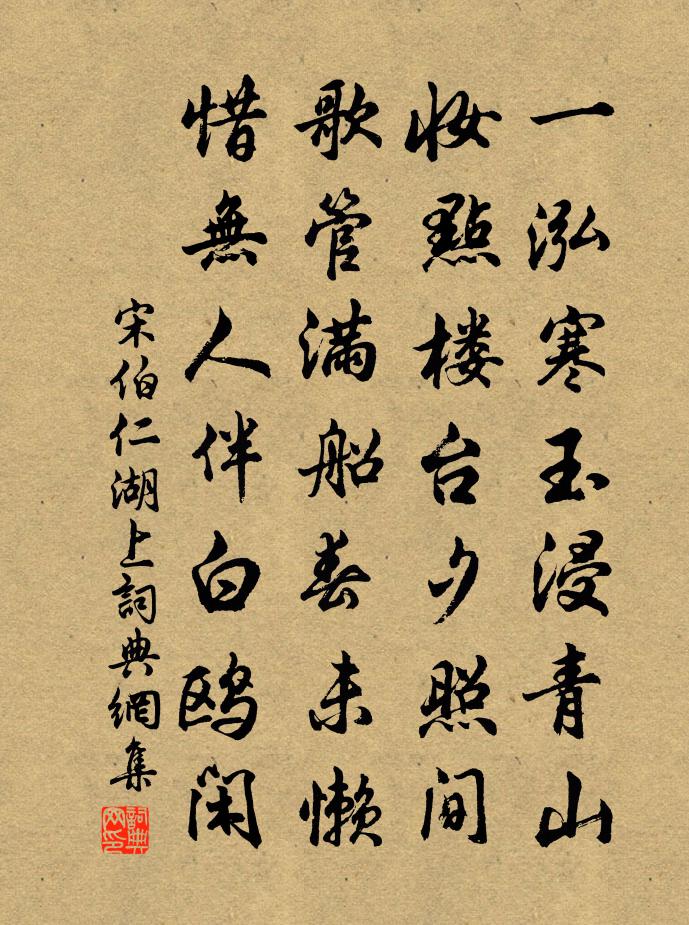 一泓寒玉浸青山
妆點楼台夕照间
歌管满船春未懒
惜無人伴白鸥闲
宋伯仁湖上詞典網集
詞典网印